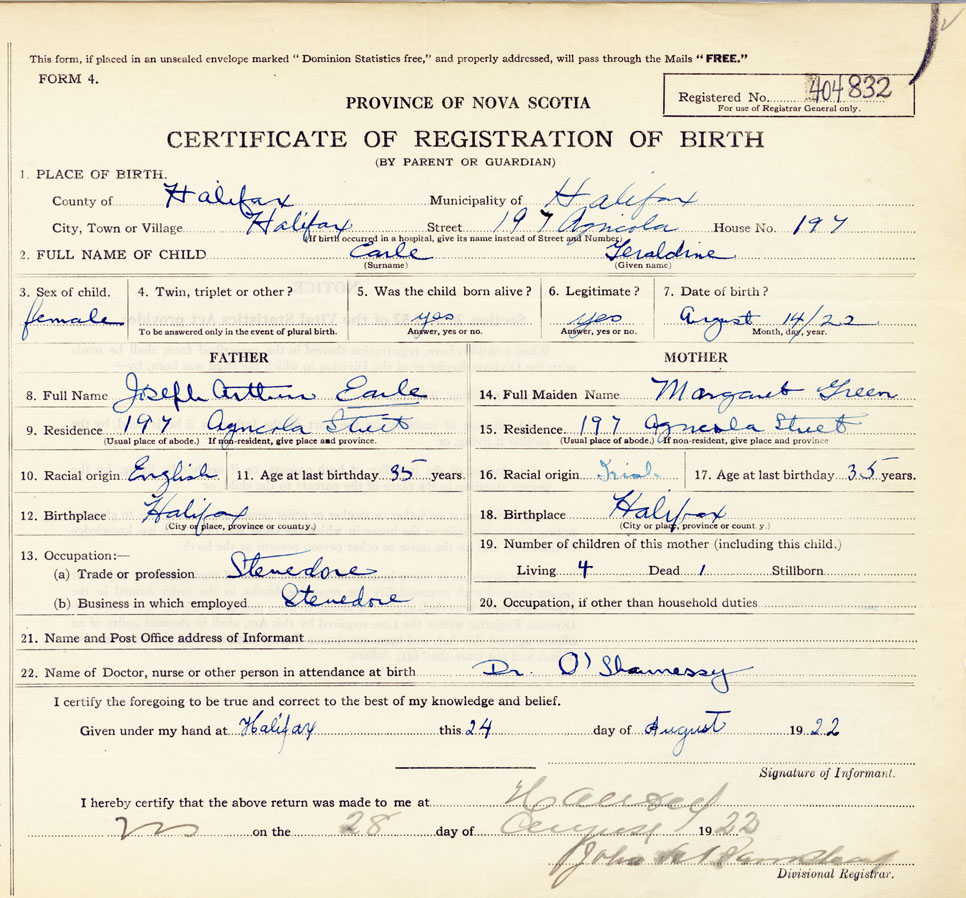 This form, if placed in an unsealed envelope marked "Dominion Statistics free," and properly addressed, will pass through the Mails "FREE."
FORM 4.
Registered No. 404832
For use of Registrar General only.
PROVINCE OF NOVA SCOTIA
CERTIFICATE OF REGISTRATION OF BIRTH
(BY PARENT OR GUARDIAN)
1. PLACE OF BIRTH.
County of Halifax Municipality of Halifax
City, Town or Village Halifax Street 197 Agricola House No. 197
(If birth occurred in a hospital, give its name instead of Street and Number)
2. FULL NAME OF CHILD Earle Geraldine
(Surname) (Given name)
3. Sex of child. 4. Twin, triplet or other? 5. Was the child born alive? 6. Legitimate? 7. Date of birth?
female yes yes August 14/22
To be answered only in the event of plural birth. Answer, yes or no. Answer, yes or no. Month, day, year.
FATHER MOTHER
8. Full Name Joseph Arthur Earle 14. Full Maiden Name Margaret Green
9. Residence 197 Agricola Street 15. Residence 197 Agricola Street
(Usual place of abode.) If non-resident, give place and province. (Usual place of abode.) If non-resident, give place and province
10. Racial origin English 11. Age at last birthday 35 years. 16. Racial origin Irish 17. Age at last birthday 35 years.
12. Birthplace Halifax 18. Birthplace Halifax
(City or place, province or country.) (City or place, province or country.)
13. Occupation:— 19. Number of children of this mother (including this child.)
(a) Trade or profession Stevedore Living 4 Dead 1 Stillborn
(b) Business in which employed Stevedore 20. Occupation, if other than household duties
21. Name and Post Office address of Informant
22. Name of Doctor, nurse or other person in attendance at birth Dr. O'Shaunessy
I certify the foregoing to be true and correct to the best of my knowledge and belief.
Given under my hand at Halifax this 24 day of August 1922
Signature of Informant.
I hereby certify that the above return was made to me at Halifax
on the 28 day of August 1922
John
Divisional Registrar.